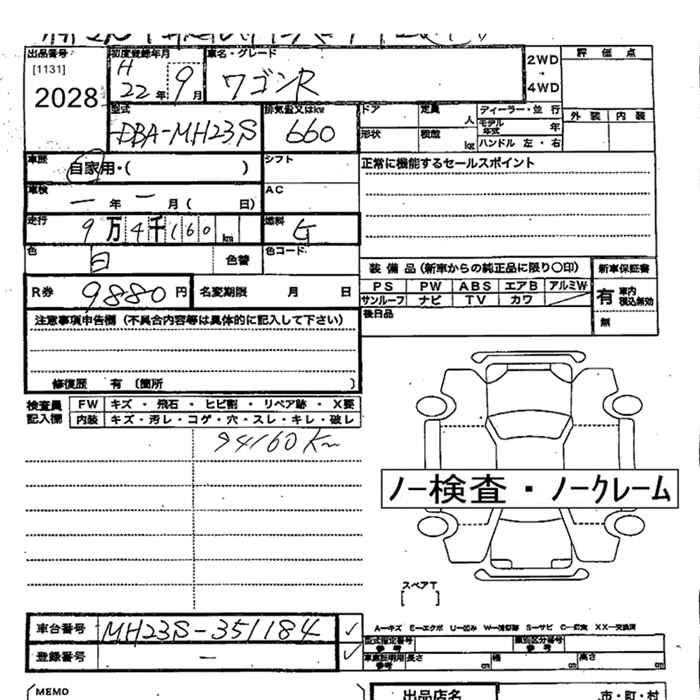 出品番号 初度登録年月 車名・グレード 2WD 評価点
[1131] H 22年 9月 ワゴンR ・
2028 4WD 外装 内装
型式 排気量又はkw ドア 定員 人 ディーラー・並行
EBA-MH23S 660 形状 積載 kg モデル年式 年
ハンドル 左・右
車歴 自家用・( ) シフト 正常に機能するセールスポイント
車検 ー年 ー月( 日) AC
走行 9万4千160km 燃料 G
色 白 色替 色コード
装備品(新車からの純正品に限り〇印) 新車保証書
PS PW ABS エアB アルミW
サンルーフ ナビ TV カワ
有 車内 税込無効
無
R券 9880円 名変期限 月 日 後日品
注意事項申告欄(不具合内容等は具体的に記入して下さい)
修復歴 有〔箇所 〕
検査員記入欄 FW キズ・飛石・ヒビ割・リペア跡・X要
内装 キズ・汚レ・コゲ・穴・スレ・キレ・破レ
94160Km
ノー検査・ノークレーム
スペアT
[ ]
車台番号 MH23S-351184 ✓
登録番号 ー ✓
型式指定番号 参考 類別区分番号 参考
車庫証明用参考 長さ cm 幅 cm 高さ cm
MEMO 出品店名 市・町・村